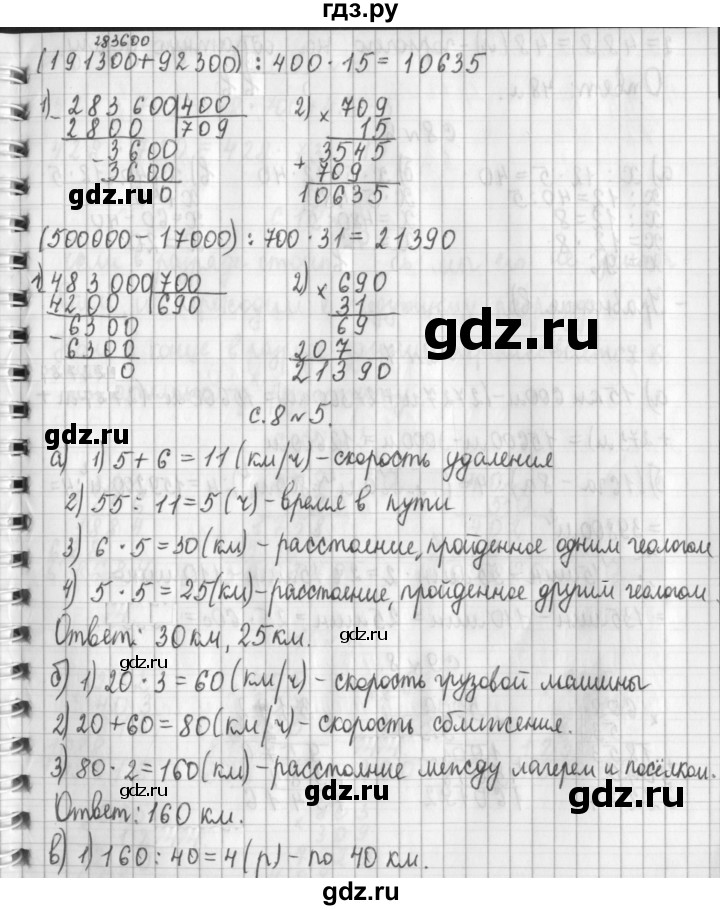 гдз.ру
283600
(191300+92300) : 400 · 15 = 10635
1) 283600 400
2800 709
3600
3600
0
2) 709
× 15
3545
+ 709
10635
gdz.ru
(500000 − 17000) : 700 · 31 = 21390
1) 483000 700
4200 690
6300
6300
0
2) 690
× 31
69
207
21390
gdz.ru
gdz.ru
с. 8 №5.
gdz.ru
а) 1) 5 + 6 = 11 (км/ч) – скорость удаления
2) 55 : 11 = 5 (ч) – время в пути
3) 6 · 5 = 30 (км) – расстояние, пройденное одним геологом
4) 5 · 5 = 25 (км) – расстояние, пройденное другим геологом.
Ответ: 30 км, 25 км.
gdz.ru
gdz.ru
б) 1) 20 · 3 = 60 (км/ч) – скорость грузовой машины
2) 20 + 60 = 80 (км/ч) – скорость сближения.
gdz.ru
3) 80 · 2 = 160 (км) – расстояние между лагерем и посёлком.
Ответ: 160 км.
gdz.ru
gdz.ru
в) 1) 160 : 40 = 4 (р) – по 40 км.
gdz.ru